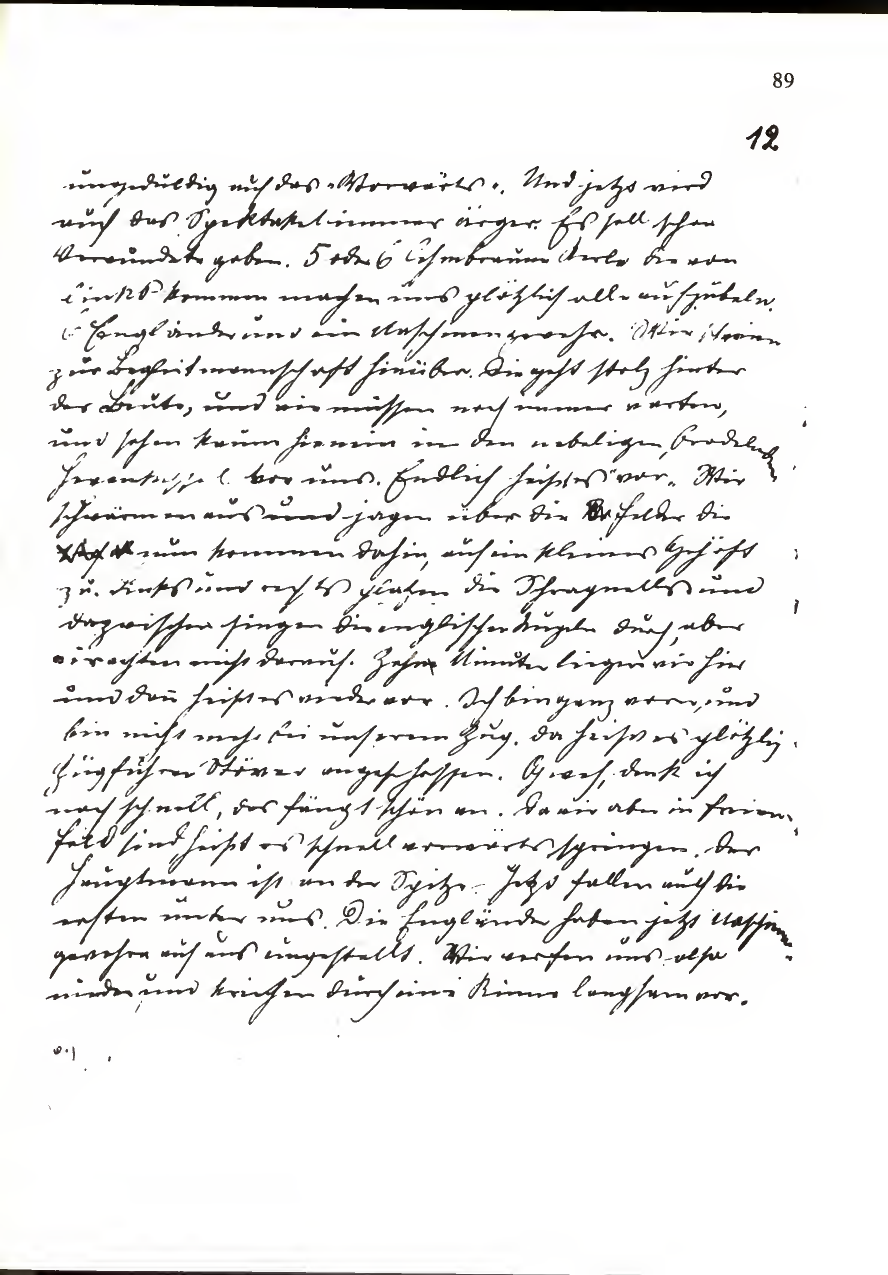 89
12
ungeduldig auf das „Vorwärts“. Und jetzt wird
auch das Spektakel immer ärger. Es soll schon
Verwundete geben. 5 oder 6 lehmbraune Kerle die von
links kommen machen uns plötzlich alle aufjubeln.
6 Engländer und ein Maschinengewehr. Wir schreien
zur Begleitmannschaft hinüber. Die geht stolz hinter
der Beute, und wir müssen noch immer warten,
und sehen kaum hinein in den nebeligen, brodelnden
Hexenkessel vor uns. Endlich heißt es „vor“. Wir
schwärmen aus und jagen über die Felder die
nun kommen dahin, auf ein kleines Gehöft
zu. Links und rechts platzen die Schrapnells und
dazwischen singen die englischen Kugeln durch, aber
wir achten nicht darauf. Zehn Minuten liegen wir hier
und dann heißt es wieder vor. Ich bin ganz vorn, und
bin nicht mehr bei unserem Zug. da heißt es plötzlich
Zugführer Stöwer angeschossen. O weh, denk ich
noch schnell, das fängt schön an. Da wir aber in freiem
Feld sind, heißt es schnell vorwärts springen. Der
Hauptmann ist an der Spitze. Jetzt fallen auch die
ersten unter uns. Die Engländer haben jetzt Maschinen-
gewehre auf uns eingestellt. Wir werfen uns also
nieder, und kriechen durch eine Rinne langsam vor.